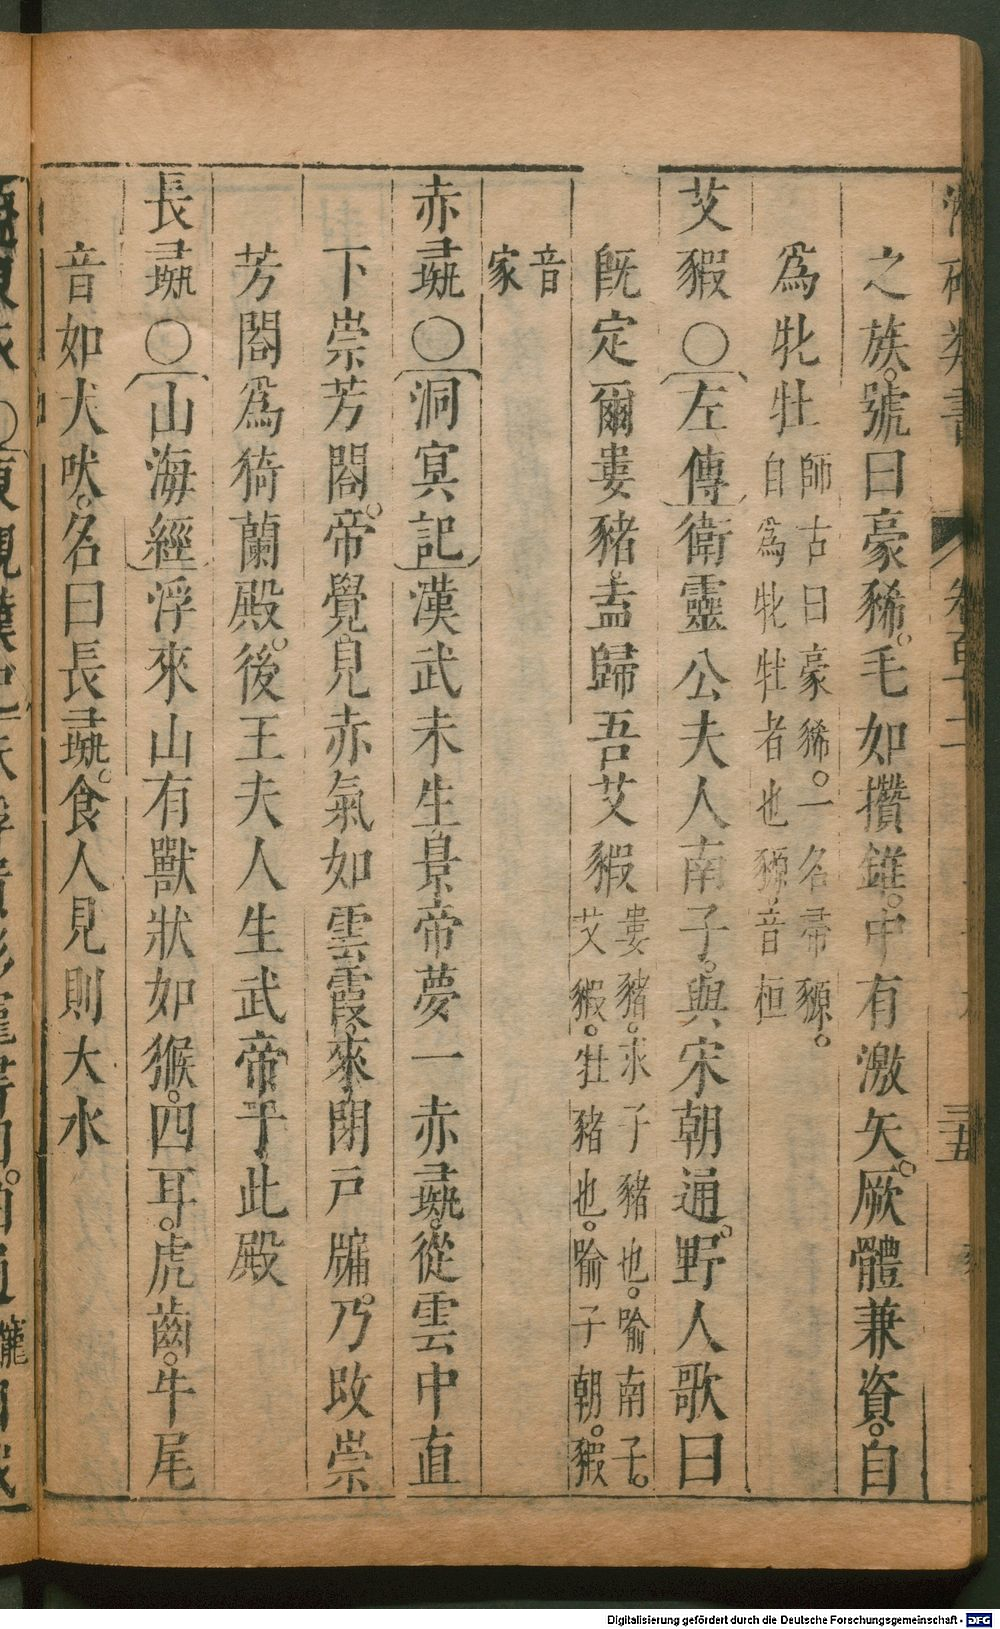 之族。號曰豪豨。毛如攢錐。中有激矢。厥體兼資。自
爲牝牡師古曰豪豨。一名帚豲。自爲牝牡者也豲音桓
艾豭〇左傳衛靈公夫人南子。與宋朝通。野人歌曰
旣定爾婁豬。盍歸吾艾豭婁豬。求子豬也。喻南子。艾豭。牡豬也。喻子朝。豭
音家
赤彘〇洞冥記漢武未生景帝夢一赤彘。從雲中直
下崇芳閣。帝覺見赤氣如雲霞。來閉戸牖。乃改崇
芳閣爲猗蘭殿。後王夫人生武帝于此殿
長彘〇山海經浮來山有獸狀如猴。四耳。虎齒。牛尾
音如犬吠。名曰長彘。食人見則大水
Digitalisierung gefördert durch die Deutsche Forschungsgemeinschaft - DFG